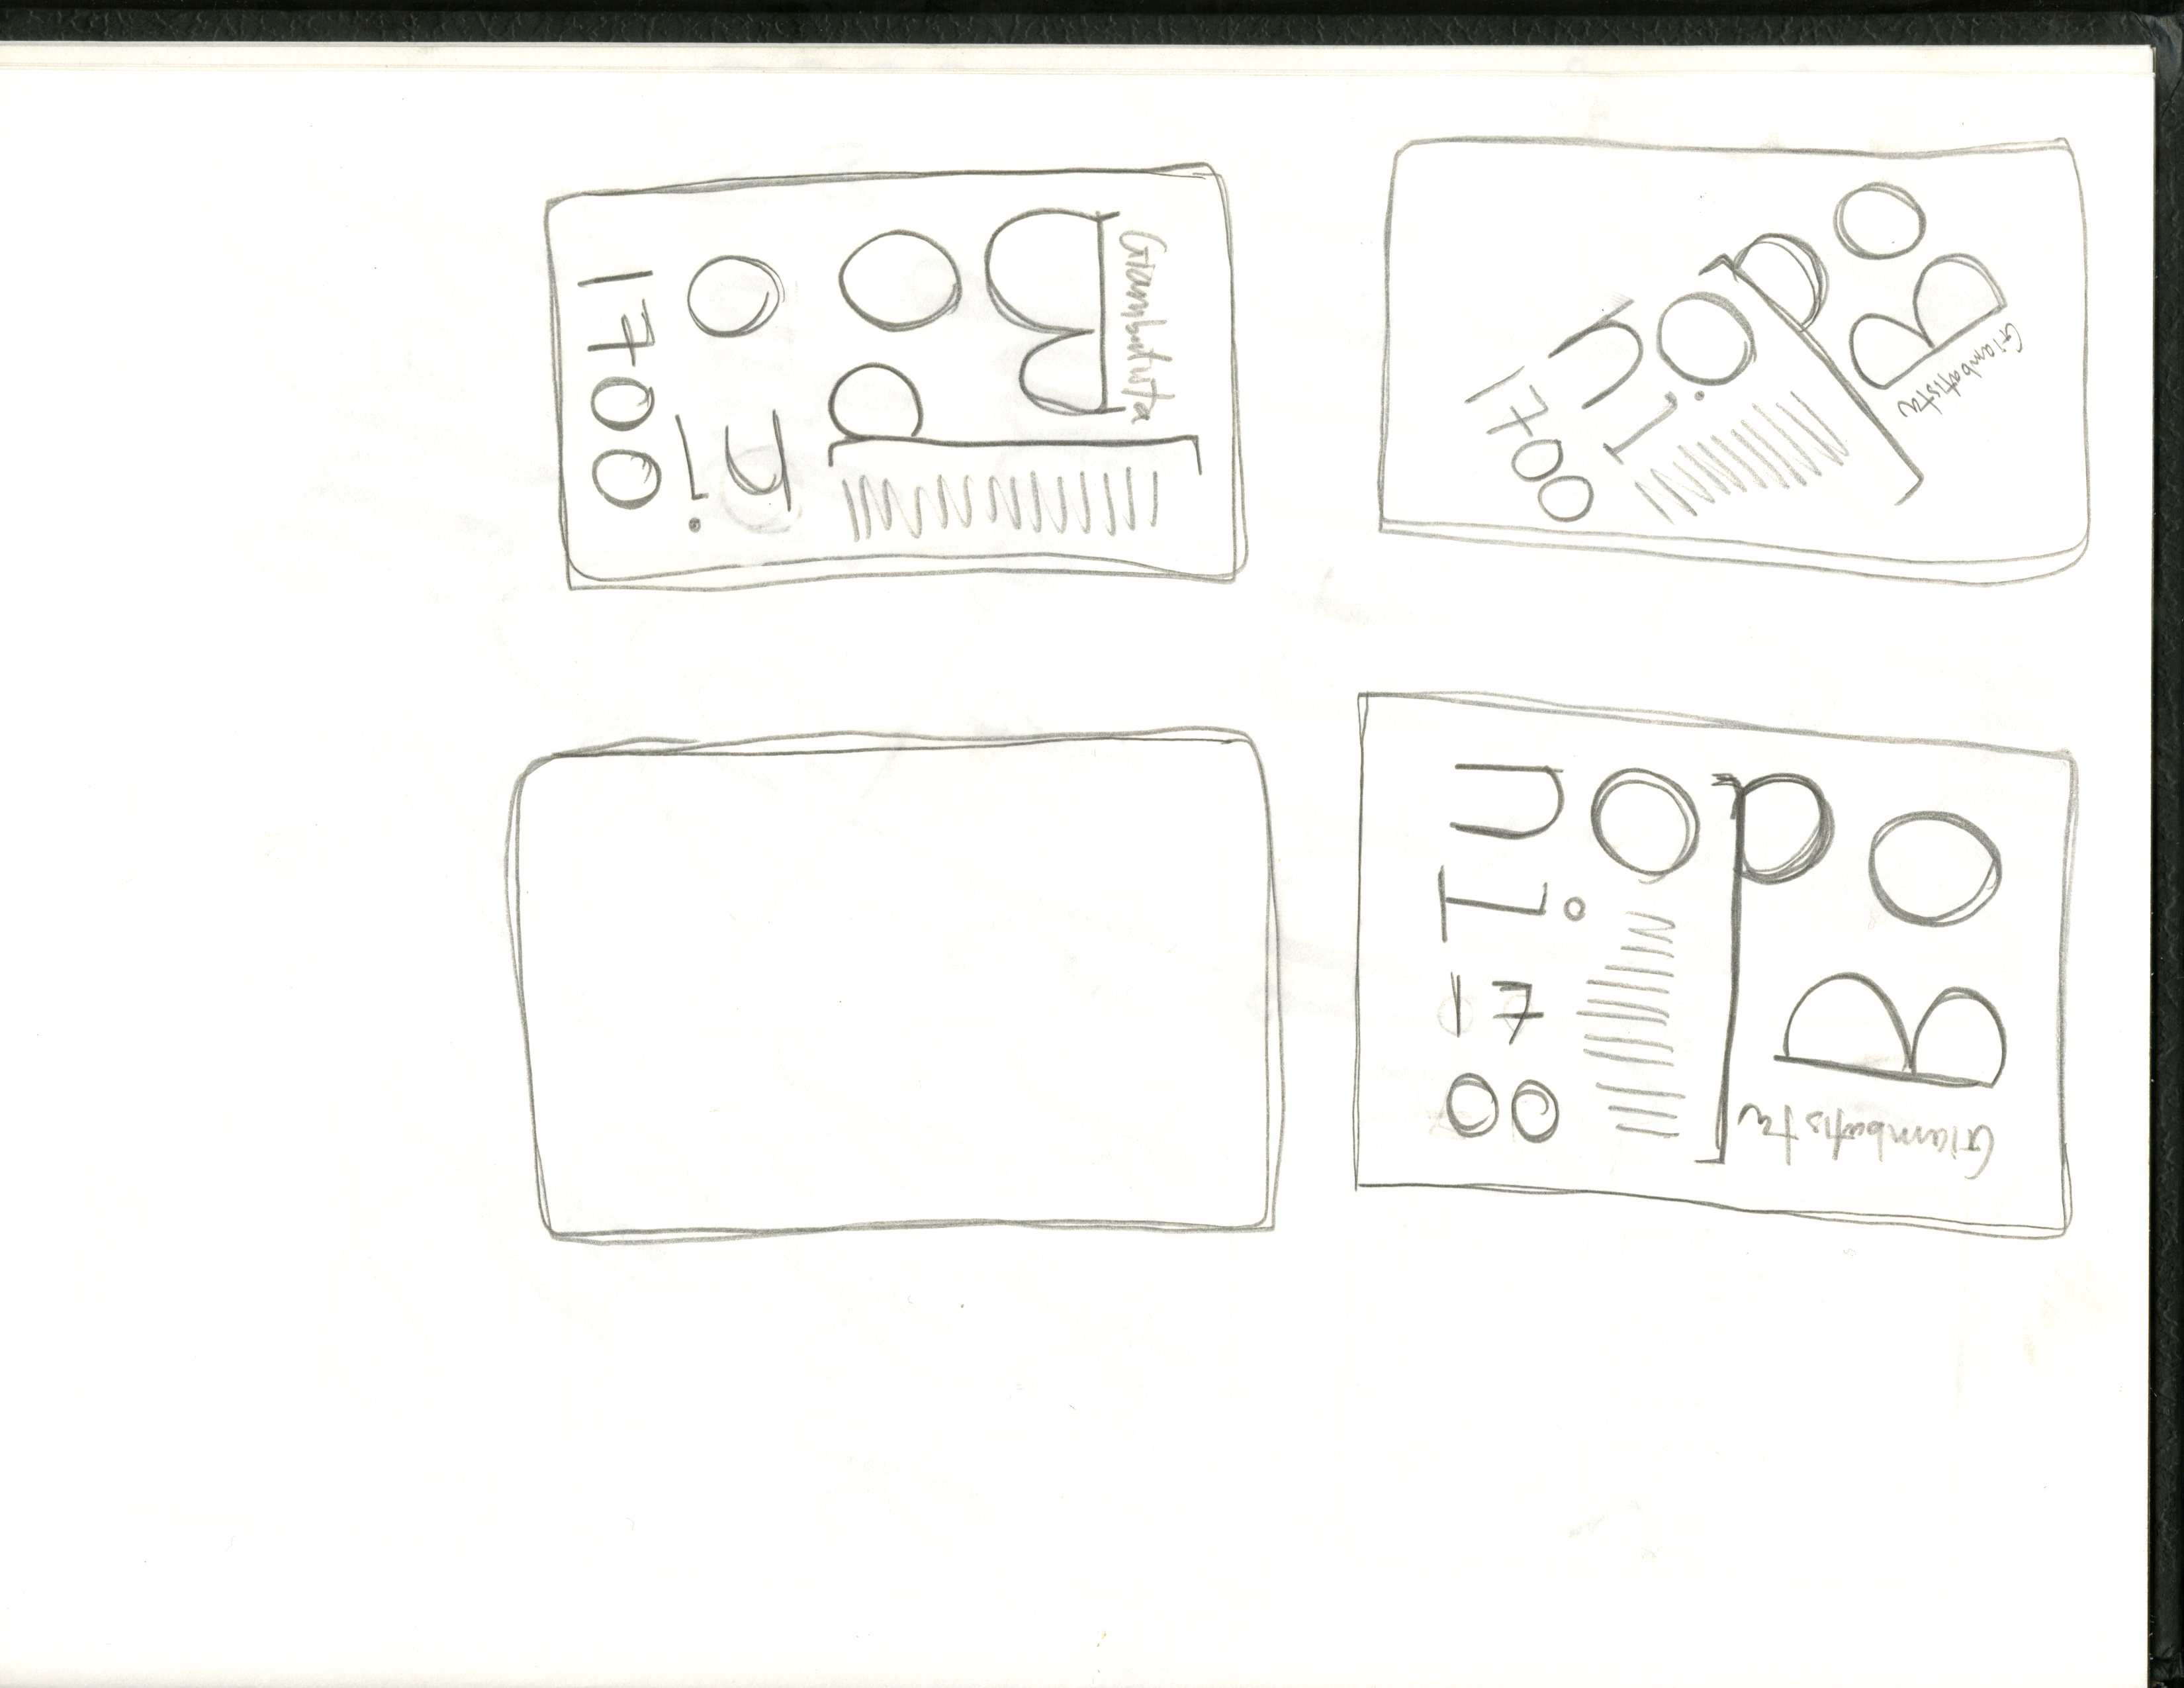 Giambatista
B
O
d
O
n
i
1700
Giambatista
B
O
d
O
n
i
17
00
Giambatista
B
O
d
O
n
i
1700